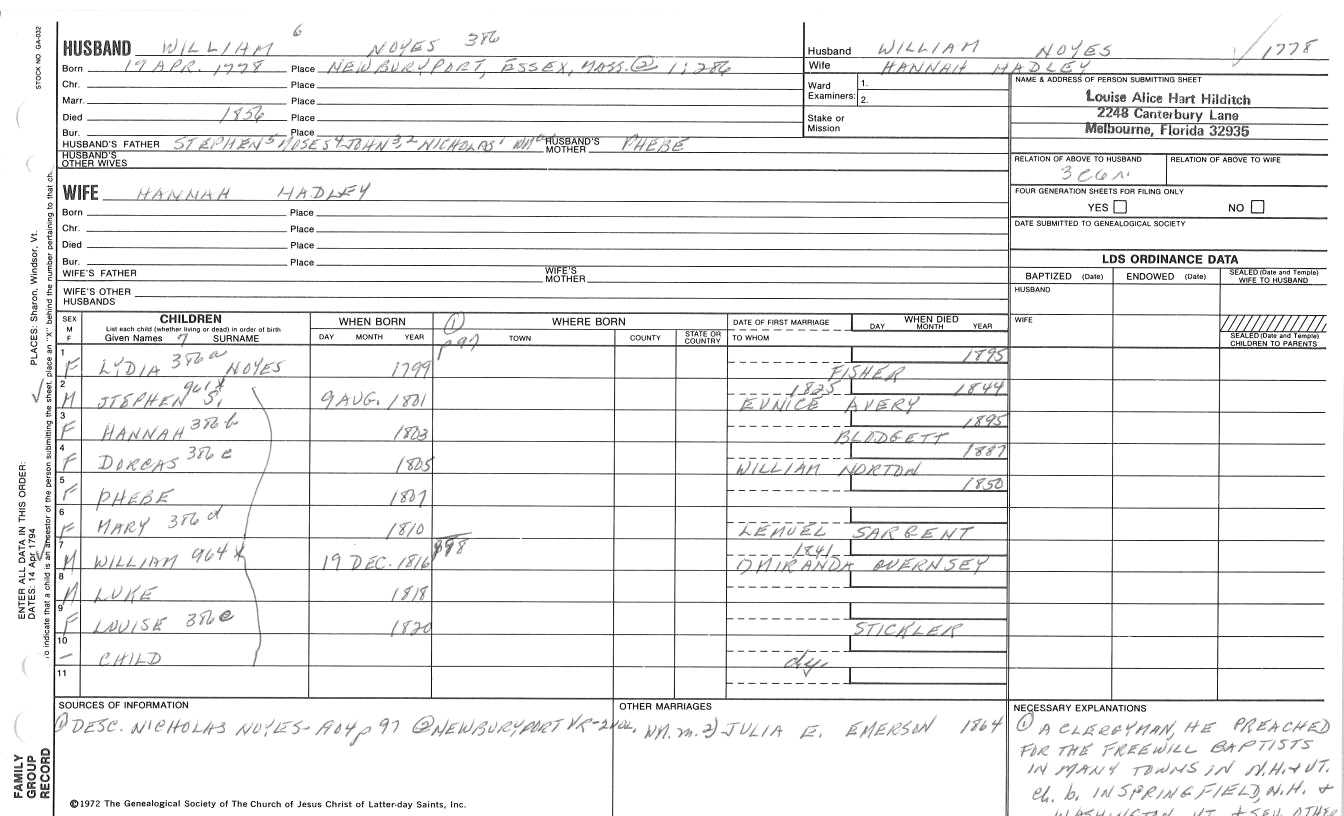 STOCK NO. GA-032
HUSBAND WILLIAM 6 NOYES 386
Born 19 APR. 1778 Place NEWBURYPORT, ESSEX, MASS. ② 1:286
Chr. Place
Marr. Place
Died 1856 Place
Bur. Place
HUSBAND'S FATHER STEPHEN 5 MOSES 4 JOHN 3,2 NICHOLAS 1 HUSBAND'S MOTHER PHEBE
HUSBAND'S OTHER WIVES
Husband WILLIAM NOYES √ 1778
Wife HANNAH HADLEY
Ward Examiners: 1.
2.
Stake or Mission
NAME & ADDRESS OF PERSON SUBMITTING SHEET
Louise Alice Hart Hilditch
2248 Canterbury Lane
Melbourne, Florida 32935
RELATION OF ABOVE TO HUSBAND RELATION OF ABOVE TO WIFE
FOUR GENERATION SHEETS FOR FILING ONLY
YES NO
DATE SUBMITTED TO GENEALOGICAL SOCIETY
WIFE HANNAH HADLEY
Born Place
Chr. Place
Died Place
Bur. Place
WIFE'S FATHER WIFE'S MOTHER
WIFE'S OTHER HUSBANDS
LDS ORDINANCE DATA
BAPTIZED (Date) ENDOWED (Date) SEALED (Date and Temple) WIFE TO HUSBAND
HUSBAND
WIFE
SEALED (Date and Temple) CHILDREN TO PARENTS
SEX M F CHILDREN WHEN BORN ① WHERE BORN DATE OF FIRST MARRIAGE WHEN DIED
List each child (whether living or dead) in order of birth
Given Names 7 SURNAME DAY MONTH YEAR p 97 TOWN COUNTY STATE OR COUNTRY TO WHOM DAY MONTH YEAR
1 F LYDIA 386a NOYES 1799 FISHER 1895
2 M STEPHEN S. 961x 9 AUG. 1801 1825 EUNICE AVERY 1844
3 F HANNAH 386b 1803 BLODGETT 1895
4 F DORCAS 386c 1805 WILLIAM NORTON 1887
5 F PHEBE 1807 1850
6 F MARY 386d 1810 LEMUEL SARGENT
7 M WILLIAM 964x 19 DEC. 1816 p98 1841 OMIRANDA GUERNSEY
8 M LUKE 1818
9 F LOUISE 386e 1820 STICKLER
10 – CHILD dy.
11
SOURCES OF INFORMATION
① DESC. NICHOLAS NOYES- 904 p 97 ② NEWBURYPORT VR-2 VOL.
OTHER MARRIAGES
WM. m. 2) JULIA E. EMERSON 1864
NECESSARY EXPLANATIONS
① A CLERGYMAN, HE PREACHED
FOR THE FREEWILL BAPTISTS
IN MANY TOWNS IN N.H. & VT.
ch. b. IN SPRINGFIELD, N.H. &
WASHINGTON, VT.
©1972 The Genealogical Society of The Church of Jesus Christ of Latter-day Saints, Inc.
FAMILY GROUP RECORD
ENTER ALL DATA IN THIS ORDER:
DATES: 14 Apr 1794
PLACES: Sharon, Windsor, Vt.
To indicate that a child is an ancestor of the person submitting the sheet, place an "X" behind the number pertaining to that ch